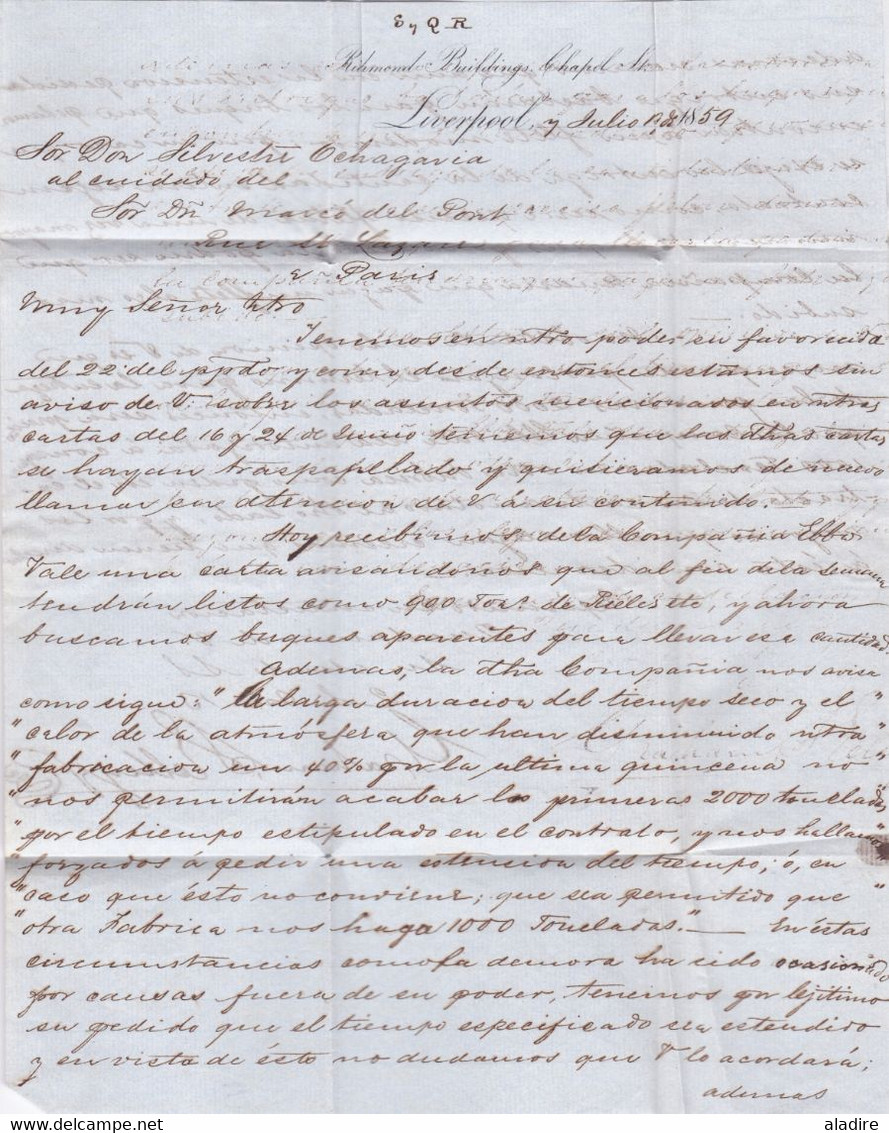 E y Q R
Richmond Buildings, Chapel St.
Liverpool, y Julio 1859
Sor Don Silvestre Ochagavia
al cuidado del
Sor Dn Marcó del Pont
Rue St Lazare
Paris
Muy Señor Ntro
Tenemos en ntro poder su favorecida
del 22 del ppdo y como desde entonces estamos sin
aviso de V. sobre los asuntos mencionados en ntras
cartas del 16 y 24 de Junio tememos que las dhas cartas
se hayan traspapellado y quisieramos de nuevo
llamar la atencion de V á su contenido.
Hoy recibimos de la Compañia Ebbw
Vale una carta avisándonos que al fin de la semana
tendrán listos como 900 Tons. de Rieles etc, y ahora
buscamos buques aparentes para llevar esa cantidad.
Ademas, la dha Compañia nos avisa
como sigue: "La larga duracion del tiempo seco y el "
" calor de la atmósfera que han disminuido ntra "
" fabricacion un 40% por la ultima quincena no "
" nos permitirán acabar las primeras 2000 toneladas
" por el tiempo estipulado en el contrato, y nos hallamos "
" forzados á pedir una estencion del tiempo; ó, en "
" caso que ésto no conviene; que sea permitido que "
" otra Fabrica nos haga 1000 Toneladas." — En éstas
circumstancias como la demora ha sido ocasionado
por causas fuera de su poder, tenemos por lejitimo
su pedido que el tiempo especificado sea estendido
y en vista de ésto no dudamos que V lo acordará;
ademas
www.delcampe.net
aladire